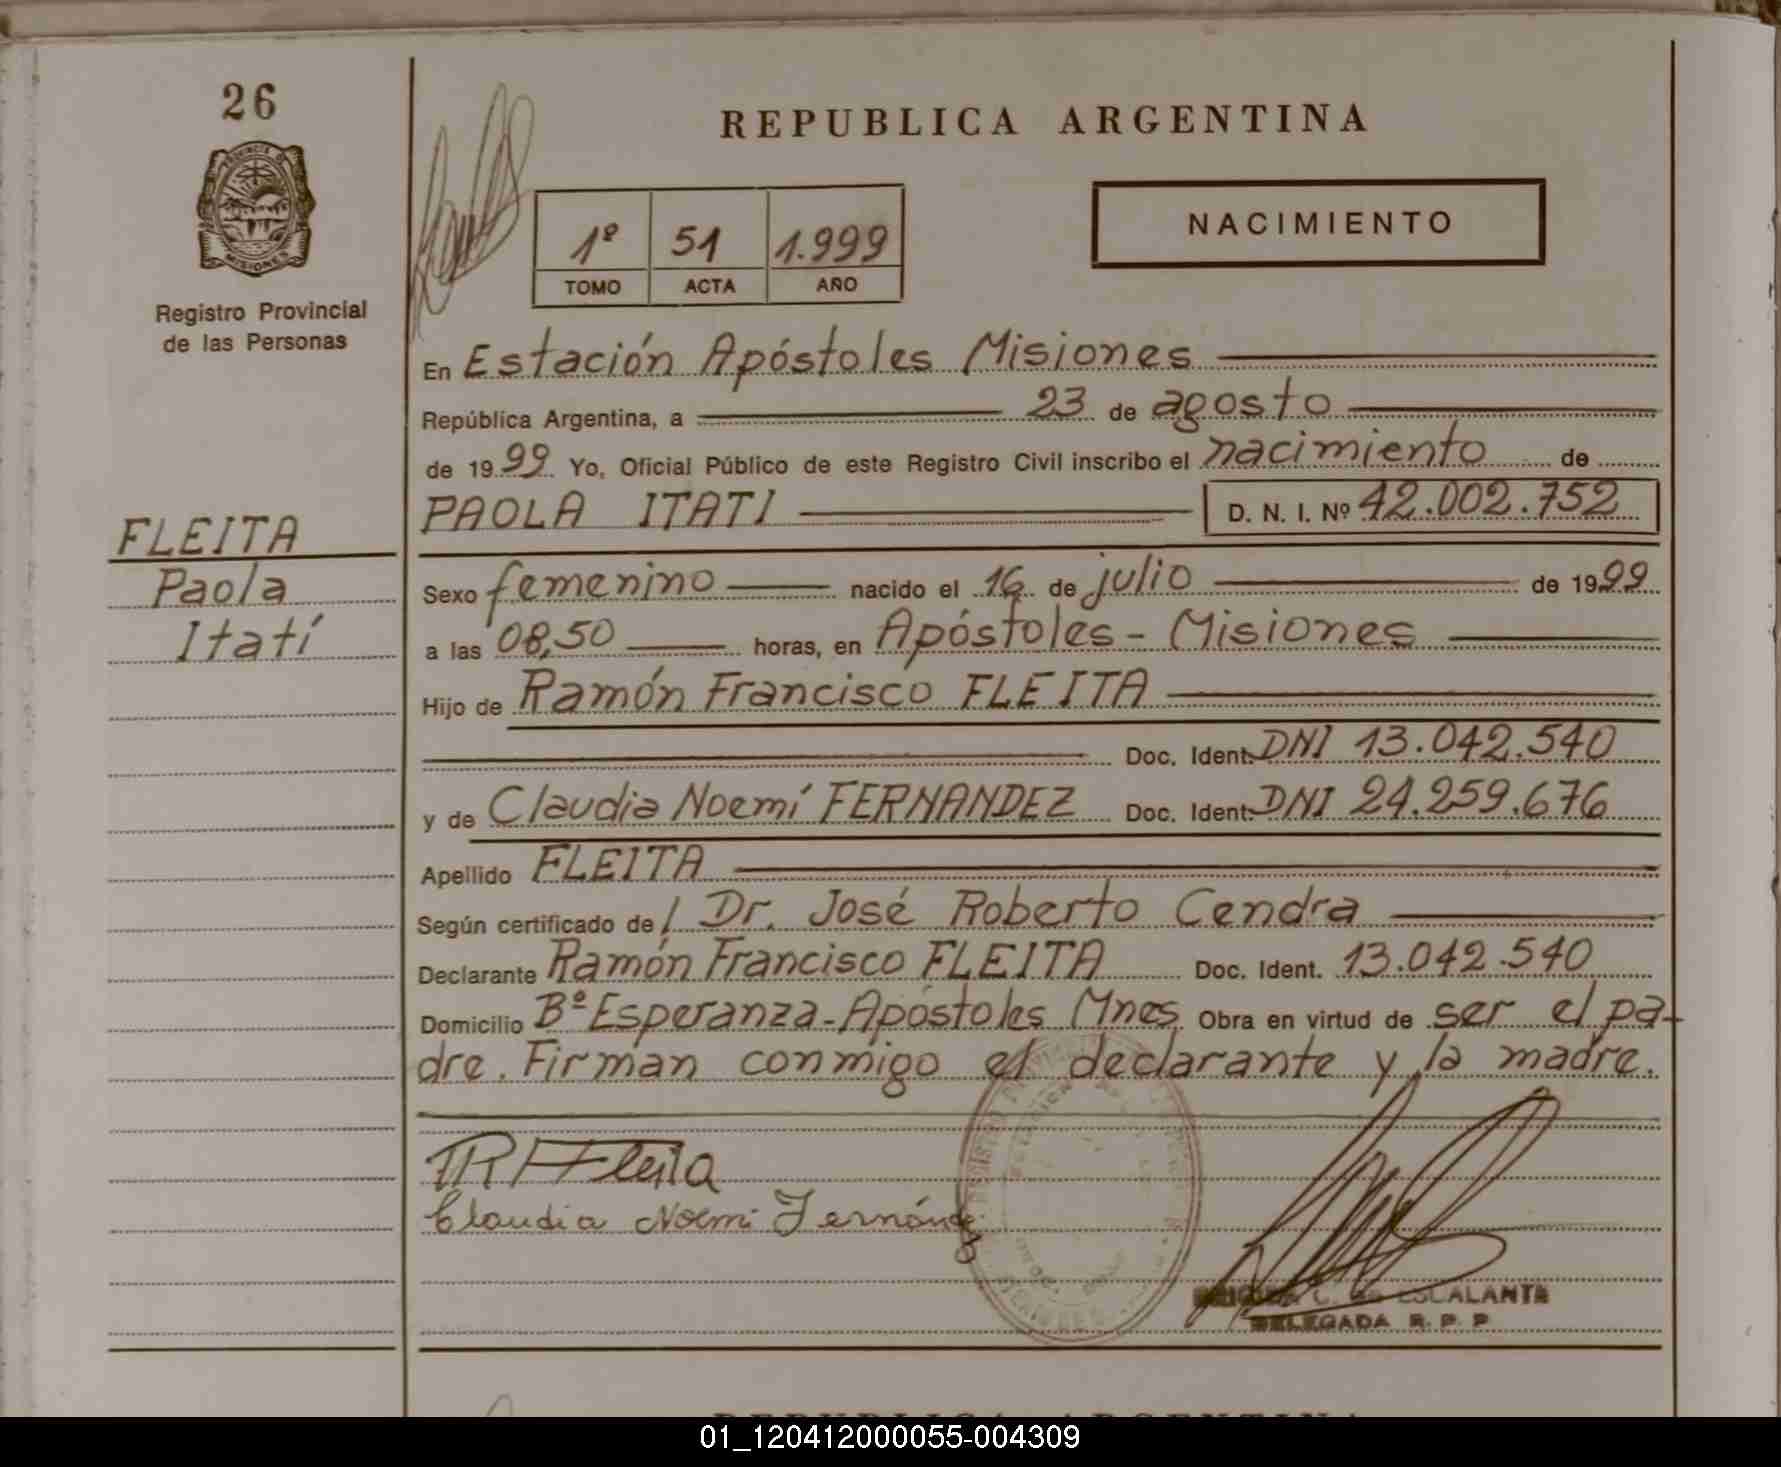 26
PROVINCIA D
MISIONES
Registro Provincial
de las Personas
FLEITA
Paola
Itatí
REPUBLICA ARGENTINA
1º 51 1.999
TOMO ACTA AÑO
NACIMIENTO
En Estación Apóstoles Misiones
República Argentina, a 23 de agosto
de 1999 Yo, Oficial Público de este Registro Civil inscribo el nacimiento de
PAOLA ITATI D. N. I. Nº 42.002.752
Sexo femenino nacido el 16 de julio de 1999
a las 08,50 horas, en Apóstoles - Misiones
Hijo de Ramón Francisco FLEITA
Doc. Ident. DNI 13.042.540
y de Claudia Noemí FERNANDEZ Doc. Ident. DNI 24.259.676
Apellido FLEITA
Según certificado de l Dr. José Roberto Cendra
Declarante Ramón Francisco FLEITA Doc. Ident. 13.042.540
Domicilio Bº Esperanza - Apóstoles Mnes Obra en virtud de ser el pa-
dre. Firman conmigo el declarante y la madre.
Fleita
Claudia Noemi Fernández
C. de ESCALANTE
DELEGADA R. P. P
REPUBLICA ARGENTINA
01_120412000055-004309